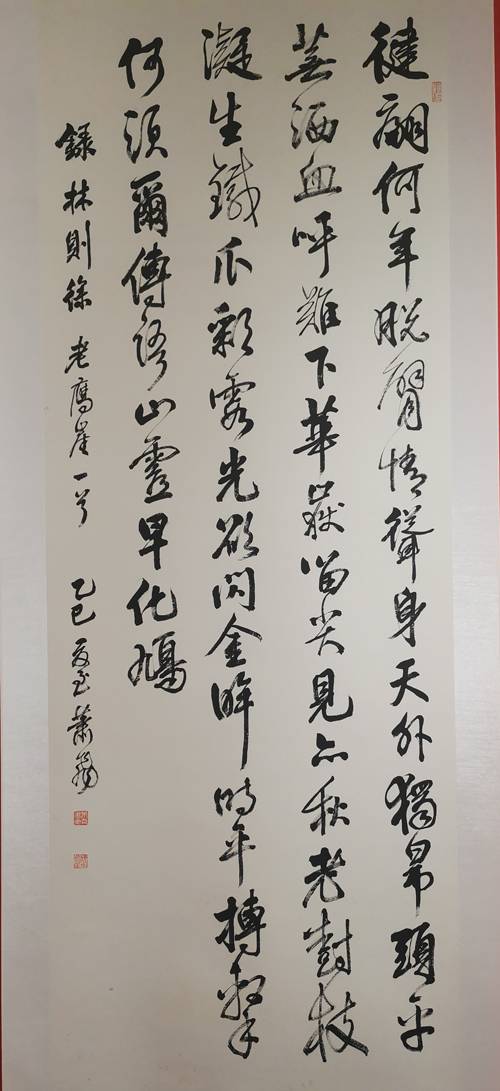 健翮何年脱臂情聳身天外獨昂頭平
蕪洒血呼難下華嶽留尖見亦秋老樹枝
凝生鐵爪彩霞光欲閃金眸時平搏擊
何須爾傳語山靈早化鳩
錄林則徐老鷹崖一首 乙巳夏至蕭